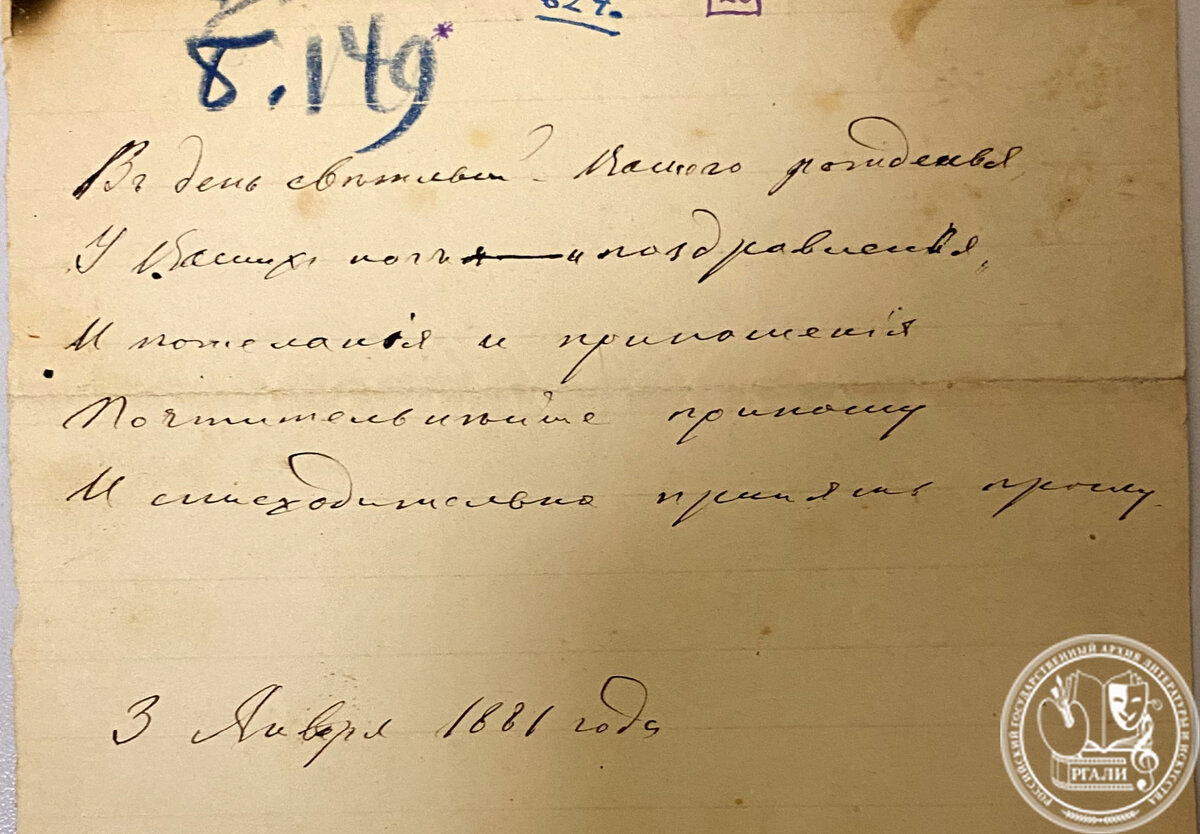 624.
8.149*
Въ день свѣтлый Вашего рожденья
У Вашихъ ногъ и поздравленья,
И пожеланія и приношенія
Почтительнѣйше приношу
И снисходительно принять прошу.
3 Января 1881 года
РОССИЙСКИЙ ГОСУДАРСТВЕННЫЙ АРХИВ ЛИТЕРАТУРЫ И ИСКУССТВА
РГАЛИ